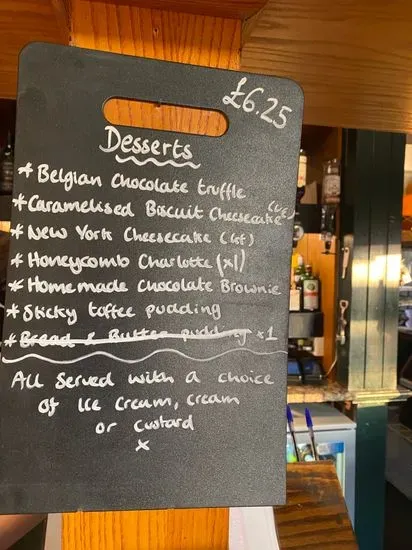 £6.25
Desserts
* Belgian Chocolate truffle
* Caramelised Biscuit Cheesecake
* New York Cheesecake
* Honeycomb Charlotte (x1)
* Homemade Chocolate Brownie
* Sticky toffee pudding
* Bread & Butter pudding x1
All Served with a choice
of Ice Cream, cream
or custard
x